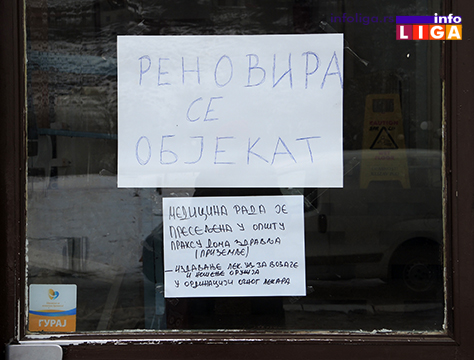 infoliga.rs
info
LIGA
РЕНОВИРА
СЕ
ОБЈЕКАТ
МЕДИЦИНА РАДА ЈЕ
ПРЕСЕЉЕНА У ОПШТУ
ПРАКСУ ДОМА ЗДРАВЉА
(ПРИЗЕМЉЕ)
– ИЗДАВАЊЕ ЛЕК. УВ. ЗА ВОЗАЧЕ
И НОШЕЊЕ ОРУЖЈА
У ОРДИНАЦИЈИ ОЧНОГ ЛЕКАРА
ГУРАЈ